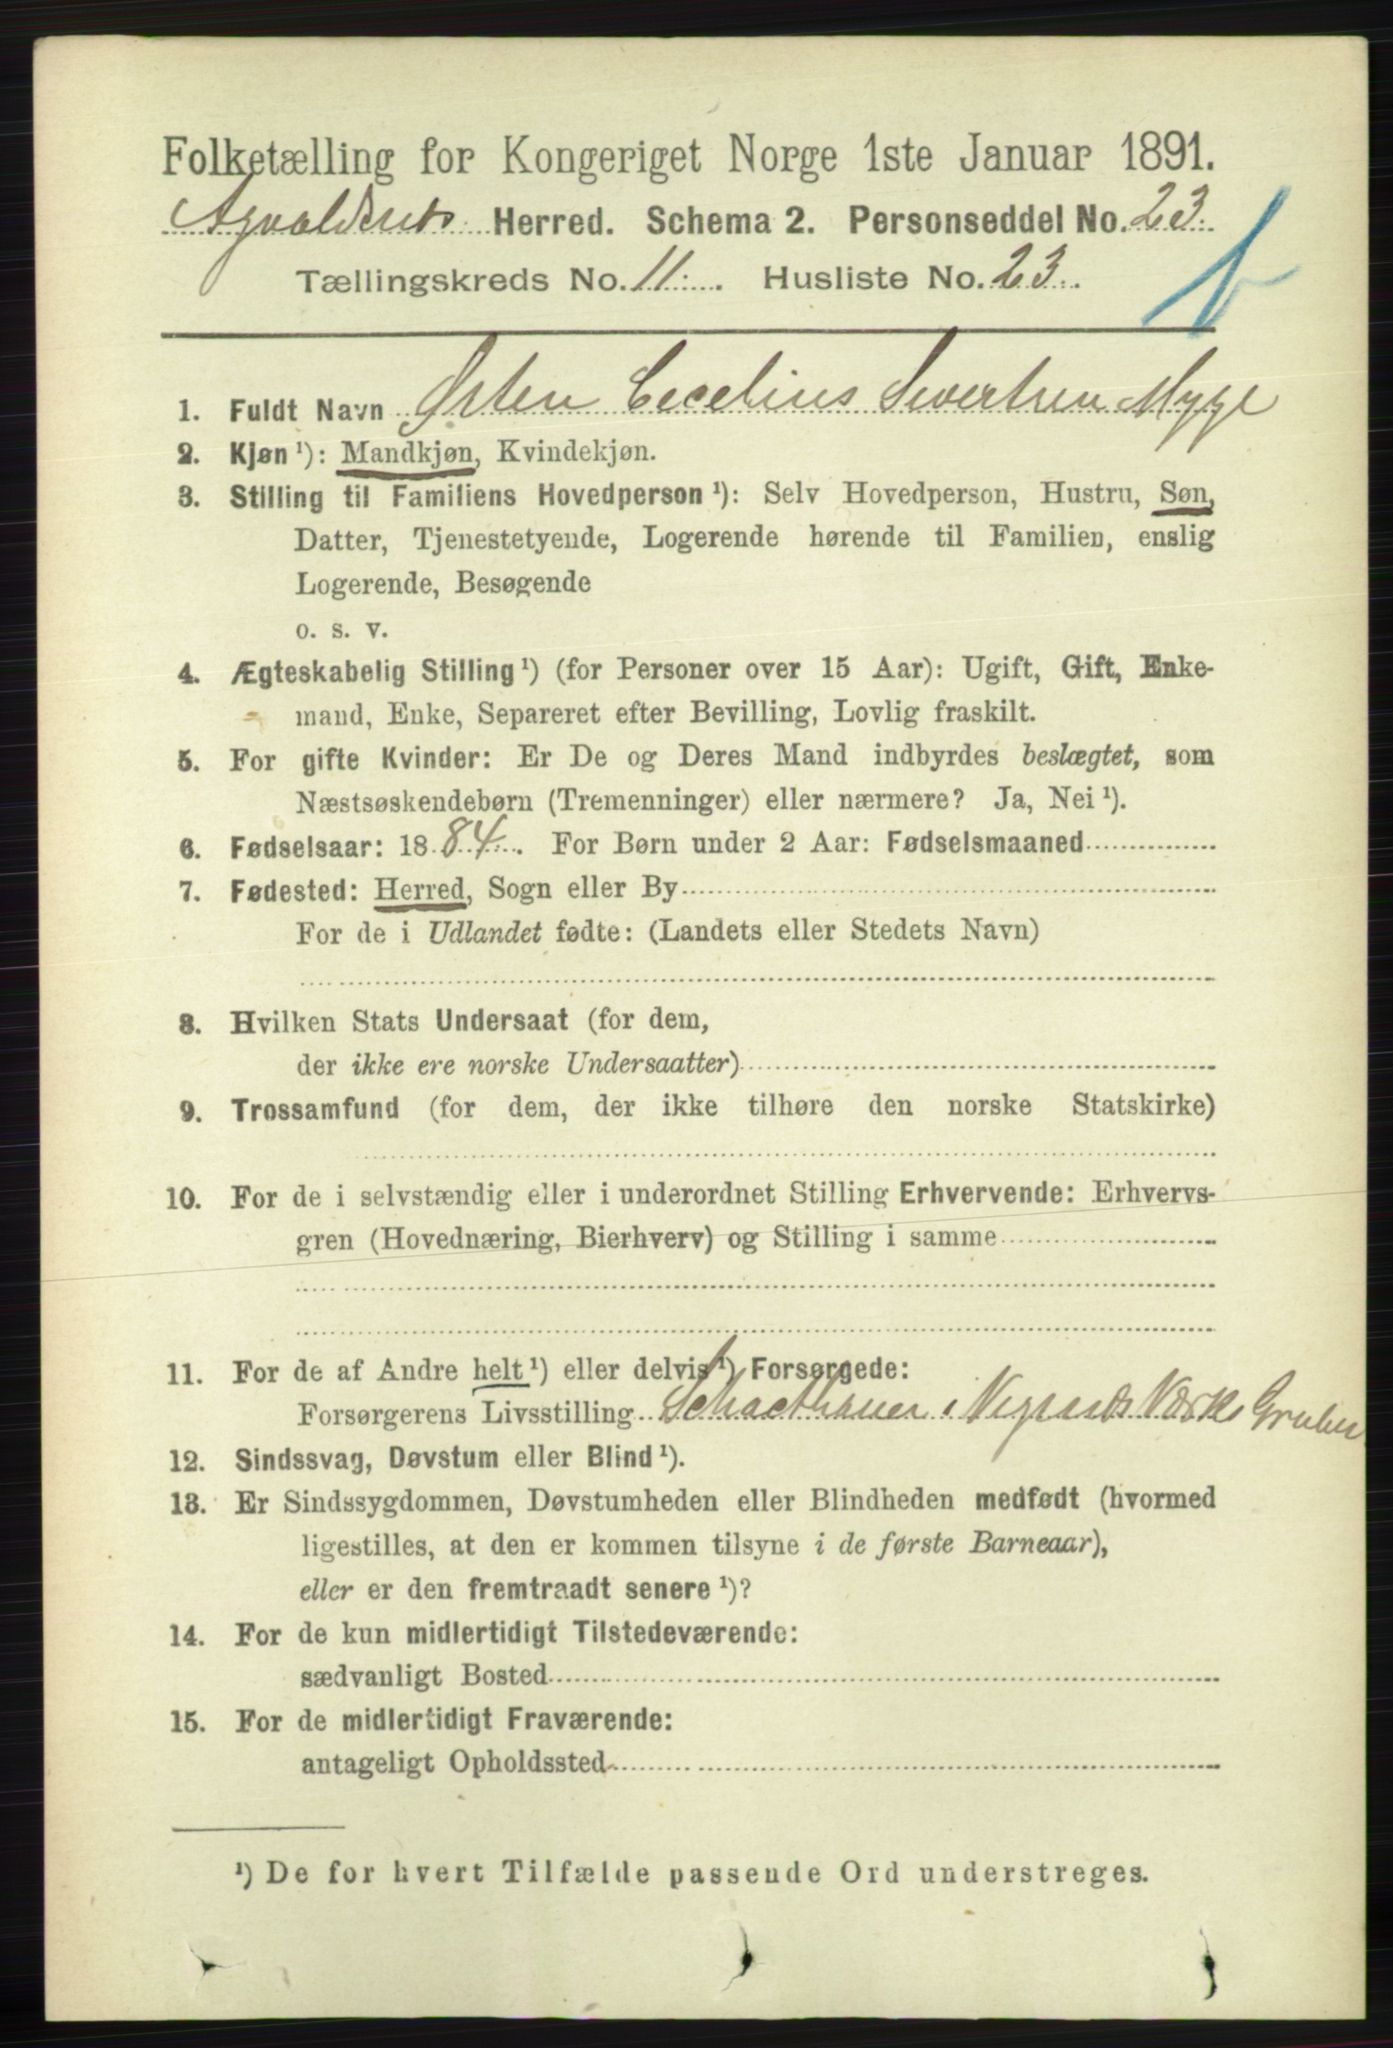 Folketælling for Kongeriget Norge 1ste Januar 1891.
Herred. Schema 2. Personseddel No. 23.
Tællingskreds No. 11. Husliste No. 23.
1. Fuldt Navn Østen Cecelius Sivertsen Mygge
2. Kjøn ¹): Mandkjøn, Kvindekjøn.
3. Stilling til Familiens Hovedperson ¹): Selv Hovedperson, Hustru, Søn,
Datter, Tjenestetyende, Logerende hørende til Familien, enslig
Logerende, Besøgende
o. s. v.
4. Ægteskabelig Stilling ¹) (for Personer over 15 Aar): Ugift, Gift, Enke-
mand, Enke, Separeret efter Bevilling, Lovlig fraskilt.
5. For gifte Kvinder: Er De og Deres Mand indbyrdes beslægtet, som
Næstsøskendebørn (Tremenninger) eller nærmere? Ja, Nei ¹).
6. Fødselsaar: 1884. For Børn under 2 Aar: Fødselsmaaned
7. Fødested: Herred, Sogn eller By
For de i Udlandet fødte: (Landets eller Stedets Navn)
8. Hvilken Stats Undersaat (for dem,
der ikke ere norske Undersaatter)
9. Trossamfund (for dem, der ikke tilhøre den norske Statskirke)
10. For de i selvstændig eller i underordnet Stilling Erhvervende: Erhvervs-
gren (Hovednæring, Bierhverv) og Stilling i samme
11. For de af Andre helt ¹) eller delvis ¹) Forsørgede:
Forsørgerens Livsstilling i Værks Gruber
12. Sindssvag, Døvstum eller Blind ¹).
13. Er Sindssygdommen, Døvstumheden eller Blindheden medfødt (hvormed
ligestilles, at den er kommen tilsyne i de første Barneaar),
eller er den fremtraadt senere ¹)?
14. For de kun midlertidigt Tilstedeværende:
sædvanligt Bosted
15. For de midlertidigt Fraværende:
antageligt Opholdssted
¹) De for hvert Tilfælde passende Ord understreges.